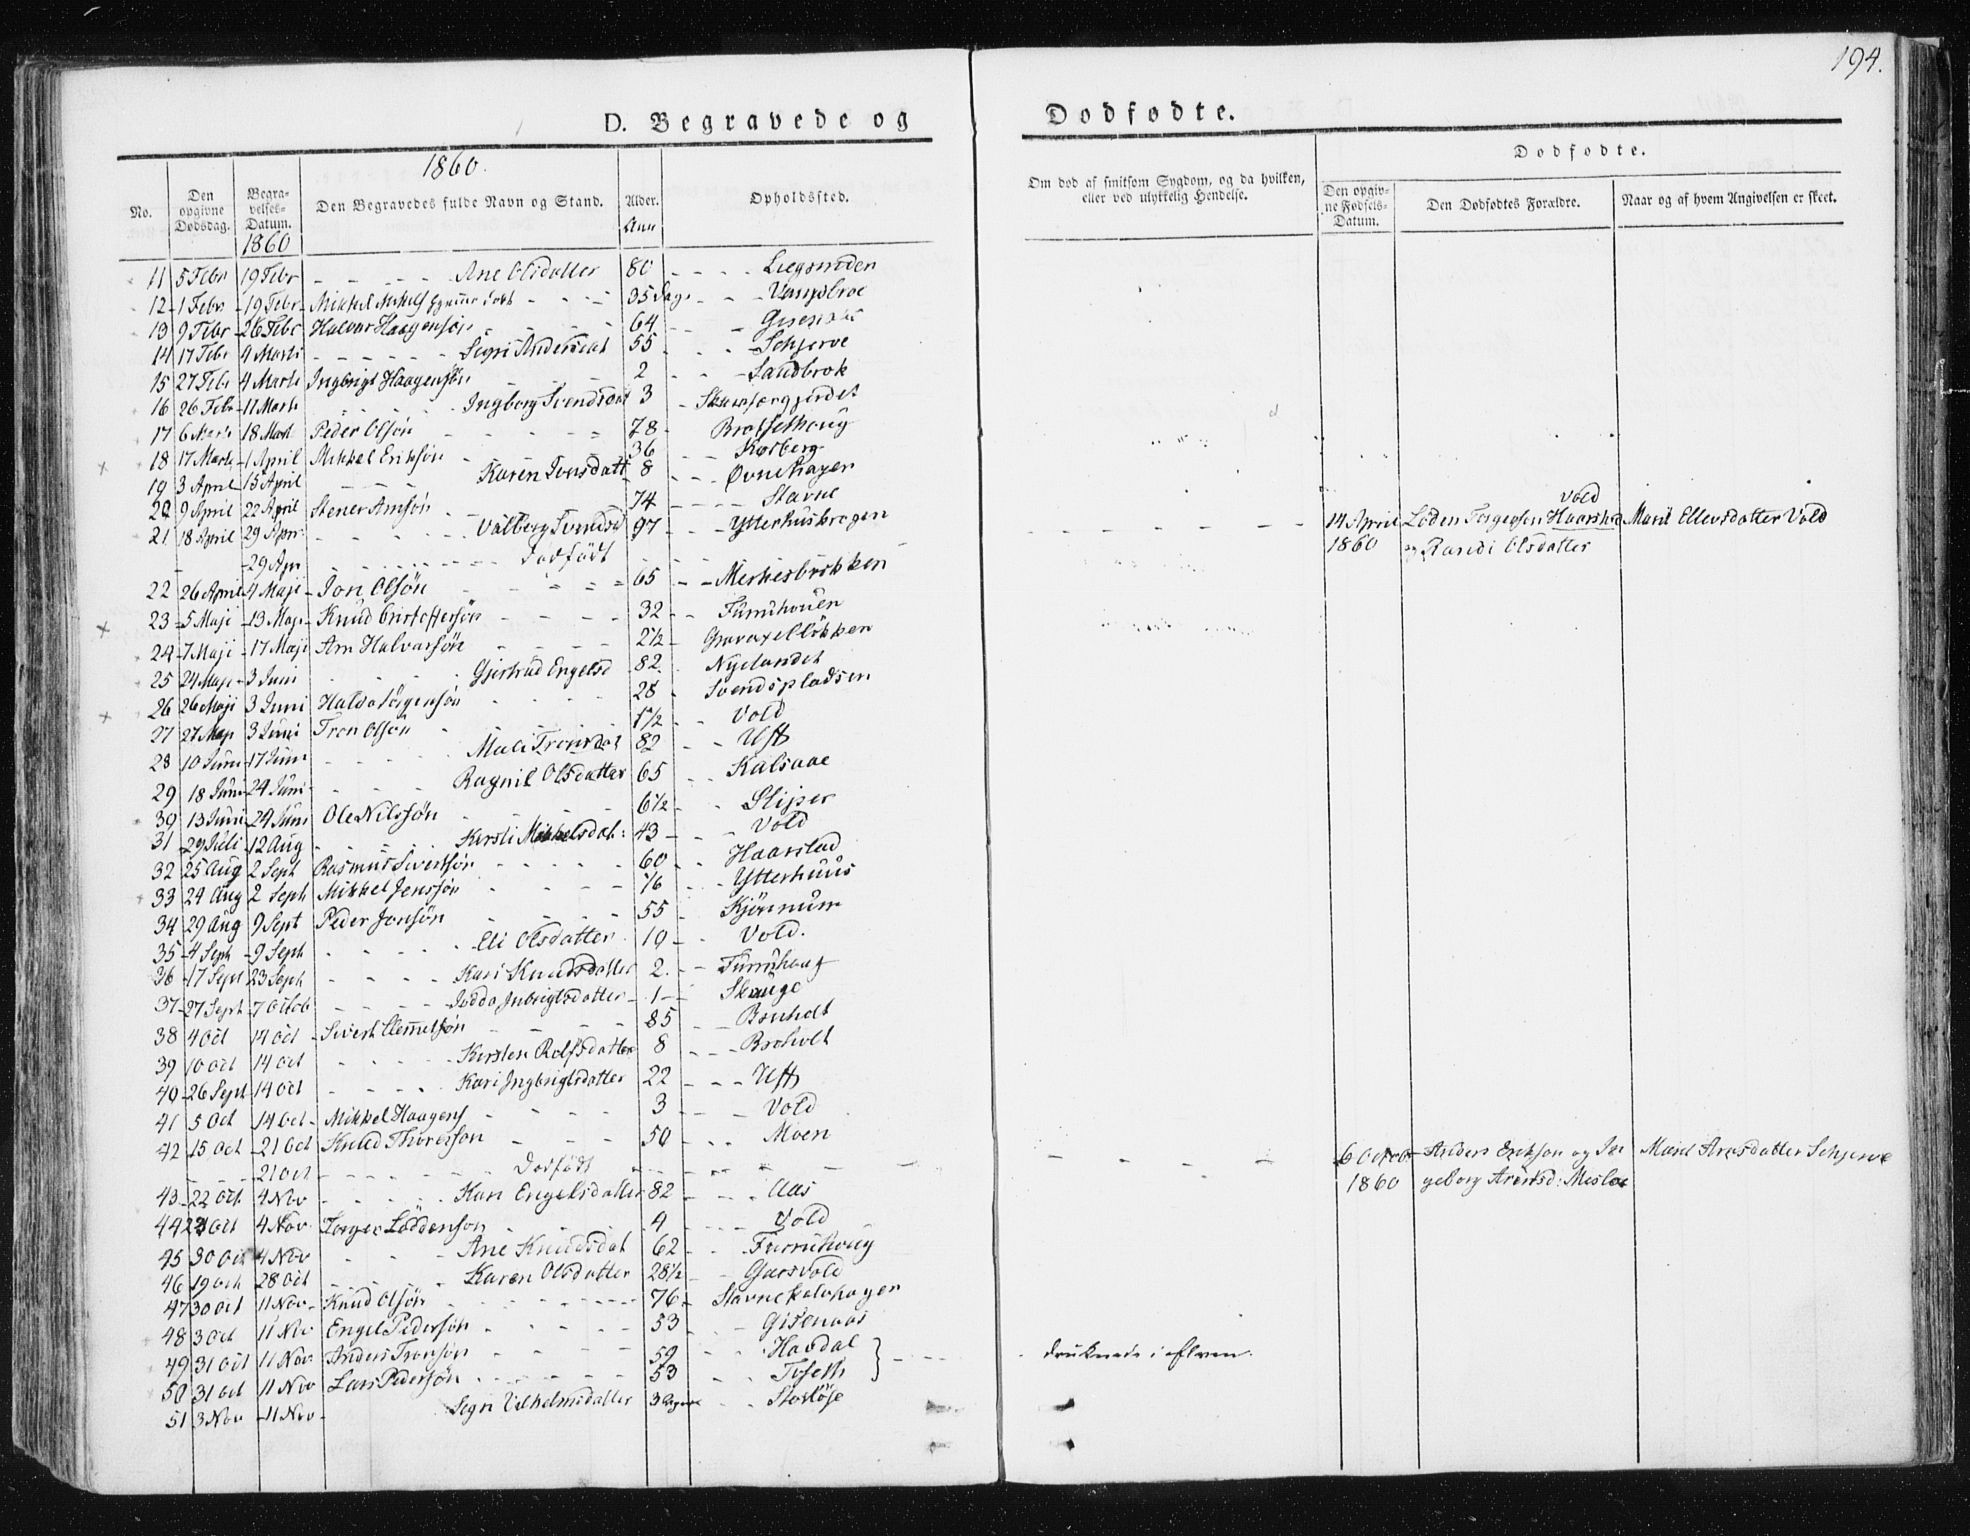 194.
D. Begravede og Dodfodte.
1860.
No.
Den opgivne Dødsdag.
Begravelses-Datum.
1860
Den Begravedes fulde Navn og Stand.
Alder.
Ann
Opholdssted.
Om død af smitsom Sygdom, og da hvilken, eller ved ulykkelig Hendelse.
Dodfodte.
Den opgivne Fodsels-Datum.
Den Dodfodtes Forældre.
Naar og af hvem Angivelsen er skeet.
11 5 Febr 19 Febr - - - - Ane Olsdatter 80 - - - -
12 1 Febr 19 Febr Mikkel 35 Dage - -
13 9 Febr 26 Febr Halvor Haagensøn 64 - -
14 17 Febr 4 Marts - - - - - Segri Andersdat 55 - - Schjerve
15 27 Febr 4 Marts Ingbrigt Haagensøn 2 - - Sandbrok
16 26 Febr 11 Marts - - - Ingborg Svendsdat 3
17 6 Marts 18 Mart Peder Olsøn - - - 78 -
18 17 Marts 1 April Mikkel Eriksøn - 36 - - Kosberg
19 3 April 15 April - - - Karen Iversdatt 8 - - - Øvnehagen
20 9 April 22 April Stener Arnsøn - - 74 - - - - Stavne
21 18 April 29 Apr - - - - - Valborg Svendsd 97 - - - Ytterhusbragen
- 29 Apr - - - - - Dodfödt - - - - 14 April 1860 Löden Torgersen Haarstad Vold og Randi Olsdatter Marit Ellevsdatter Vold
22 26 April 4 Maji Jon Olsön - - - 65 - - Merkesbrekken
23 5 Maji 13 Maji Knud Cristoffersön - - - 32 - - Furruhouen
24 7 Maji 17 Maji Arn Halvorsön - - - 2½ -
25 24 Maji 3 Juni - - - Gjertrud Engelsd 82 Nyelandet
26 26 Maji 3 Juni Haldo Törgersön - - - 28 - Svendspladsen
27 27 Maji 3 Juni Tron Olsön - 1½ - - Vold
28 10 Juni 17 Juni - - - - Mali Tronsdat 82 - - Uft
29 18 Juni 24 Juni - - - - Ragnil Olsdatter 65 - - Kalsaae
30 13 Juni 24 Juni Ole Nilssön - - - 6½ - - Sliper
31 29 Juli 12 Aug - - - - Kersti Mikkelsdat: 43 - - - Vold
32 25 Aug 2 Sept Rasmus Sivertsön - - - - 60 - - Haarstad
33 24 Aug 2 Seph Mikkel Jenssön - - - - 76 - - Ytterhuus
34 29 Aug 9 Sept Peder Jonsön - - - 55 - Kjönnum
35 4 Seph 9 Seph - - - - Eli Olsdatter 19 - - Vold.
36 17 Sept 23 Seph - - - - Kari Knudsdatter 2 - - Furruhoug
37 27 Seph 7 Octob - - - - Ingbrigtsdatter - 1 - - Skauge
38 4 Oct 14 Oct Sivert Clemetsön - - - 85 - - Broholt
39 10 Oct 14 Oct - - - - Kersten Rolfsdatter 8 - - - Broholt
40 26 Sept 14 Oct - - - - Kari Ingbrigtsdatter 22 - - - Uft
41 5 Oct 14 Oct - Mikkel Haagens - - - - 3 - - - Vold
42 15 Oct 21 Oct Knud Thoresson - - - 50 - - - Moen
- - - 21 Oct - - - - Dodfödt - - - - 6 Octob 1860 Anders Erikson og Ingeborg Arentsd: Mesloe Marit Arnsdatter Schjerve
43 22 Oct 4 Nov - - - - Kari Engelsdatter 82 - - - Aas
44 22 Oct 4 Nov Torger Löddenson - - - 4 - - - - Vold
45 30 Oct 4 Nov - - - Ane Knudsdat 62 - - Furruhoug
46 19 Octr 28 Oct - - - - Karen Olsdatter 28½ - -
47 30 Oct 11 Nov. Knud Olsön - - - - - 76 - Stavnekalvhagen
48 3 Oct 11 Nov Engel Pedersön - - - - 53 - - Gisenaas
49 31 Oct 11 Nov Anders Tronsön - - - 59 - - Havdal } - - - druknede i Elven.
50 31 Oct 11 Nov Lars Pedersön - - - - 53 - - Toseth
51 3 Nov 11 Nov - Segri Vilhelmsdatter 3 - - Storlöse